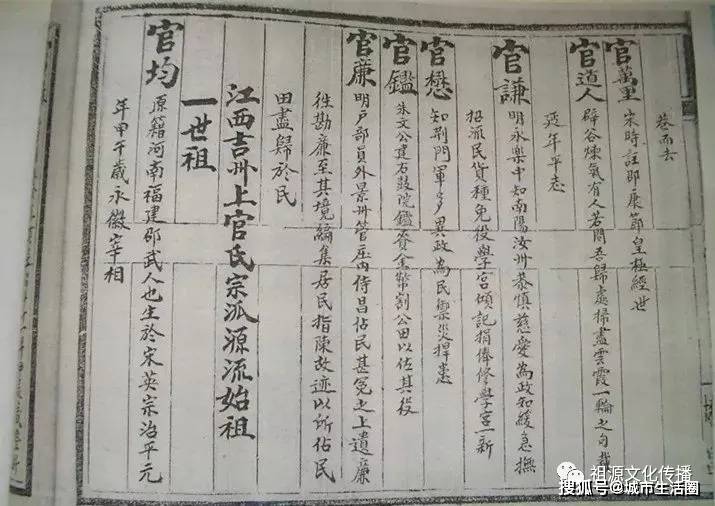 卷而去
官萬里 宋時註邵康節皇極經世
官道人 辟谷煉氣有人若問吾歸處掃盡雲霞一輪之句載
延年平志
官謙 明永樂中知南陽汝州恭慎慈愛為政知緩急撫
招派民貨種免役學宮傾記捐俸修學宮一新
官懋 知荆門軍多異政為民禦災捍患
官鑑 朱文公建石鼓院鑑資金幣割公田以佐其役
官廉 明戶部員外景州管庄內侍昌佔民甚冤之上遣廉
往勘廉至其境編集居民指陳故迹以所佔民
田盡歸於民
江西吉州上官氏宗派源流始祖
一世祖
官均 原籍河南福建邵武人也生於宋英宗治平元
年甲午歲永徽宰相
祖源文化传播
搜狐号@城市生活圈